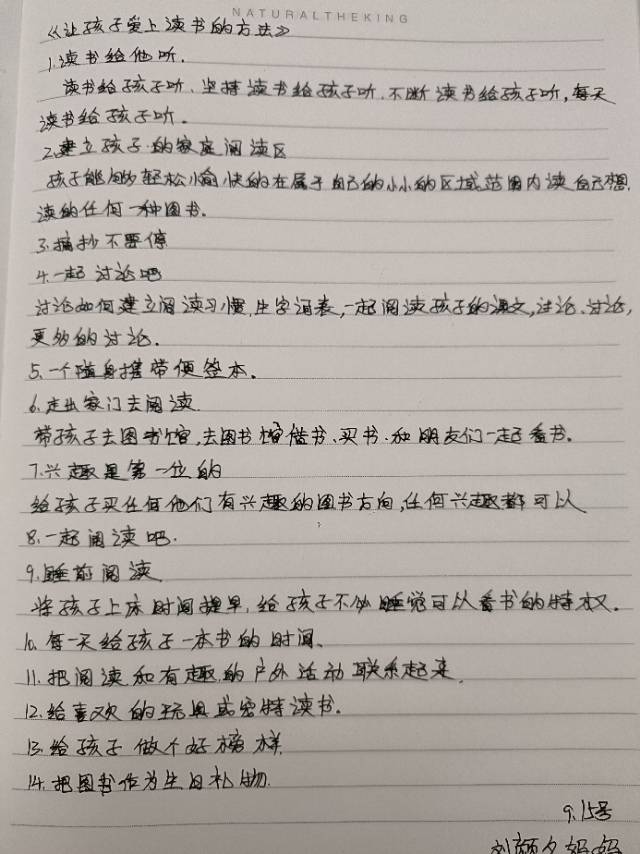 NATURALTHEKING
《让孩子爱上读书的方法》
1.读书给他听.
读书给孩子听、坚持读书给孩子听.不断读书给孩子听,每天
读书给孩子听.
2.建立孩子的家庭阅读区
孩子能够轻松愉快的在属于自己的小小的区域范围内读自己想
读的任何一种图书.
3.摘抄不要停
4.一起讨论吧
讨论如何建立阅读习惯,生字词表,一起阅读孩子的课文,讨论、讨论,
更多的讨论.
5.一个随身携带便签本.
6.走出家门去阅读.
带孩子去图书馆,去图书馆借书、买书.和朋友们一起看书.
7.兴趣是第一位的
给孩子买任何他们有兴趣的图书方向,任何兴趣都可以
8.一起阅读吧.
9.睡前阅读
将孩子上床时间提早,给孩子不必睡觉可以看书的特权.
10.每一天给孩子一本书的时间、
11.把阅读和有趣的户外活动联系起来.
12.给喜欢的玩具或宠物读书.
13.给孩子做个好榜样
14.把图书作为生日礼物.
9.15号
刘颜夕妈妈